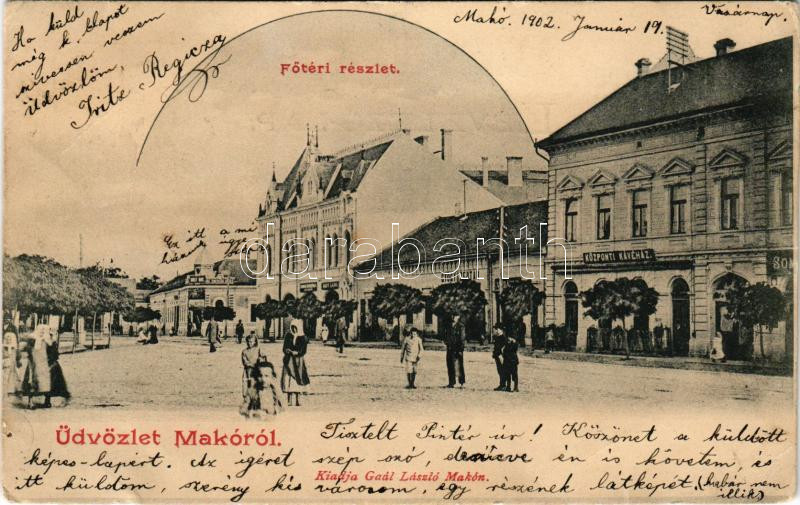 Makó. 1902. Január 19. Vasárnap.
Ha küld
még k. lapot
szivessen veszem
Üdvözlöm,
Fritz Regicza
Főtéri részlet.
Ez itt a mi
házunk
KÖZPONTI KÁVÉHÁZ
darabanth.com
Üdvözlet Makóról.
Tisztelt Pintér úr! Köszönet a küldött
képes-lapért. Az igéret szép szó, én is követem, és
Kiadja Gaál László Makón.
itt küldöm, szerény kis városom, egy részének látképét, (habár nem
illik)